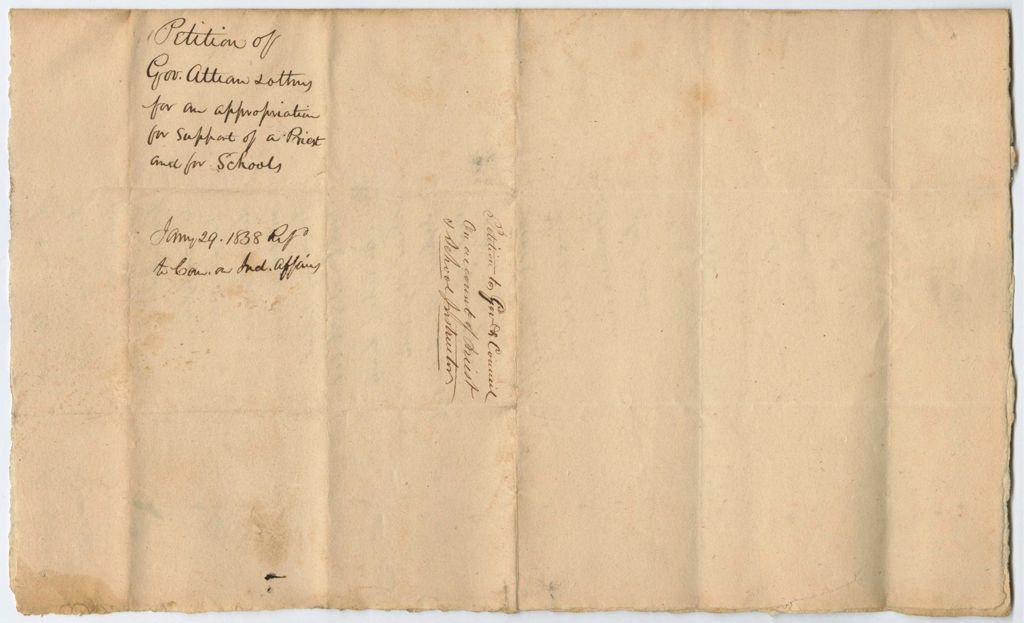 Petition of
Gov. Attean & others
for an appropriation
for support of a Priest
and for Schools
Jany 29. 1838 Refd
to Com. on Ind. Affairs
Petition to Govr & Council
On account of Priest
& School Instructor